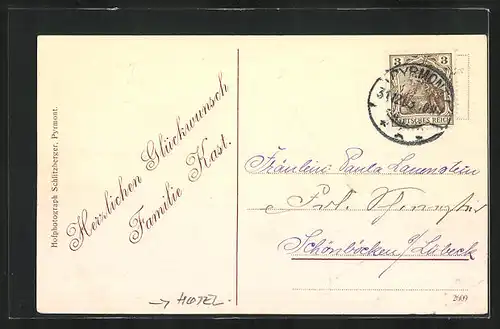 Hofphotograph Schlitzberger, Pyrmont.
Herzlichen Glückwunsch
Familie Kast.
→ HOTEL.
3 3
PYRMONT
DEUTSCHES REICH
Fräulein Paula Lauenstein
Schönböcken / Lübeck
2609